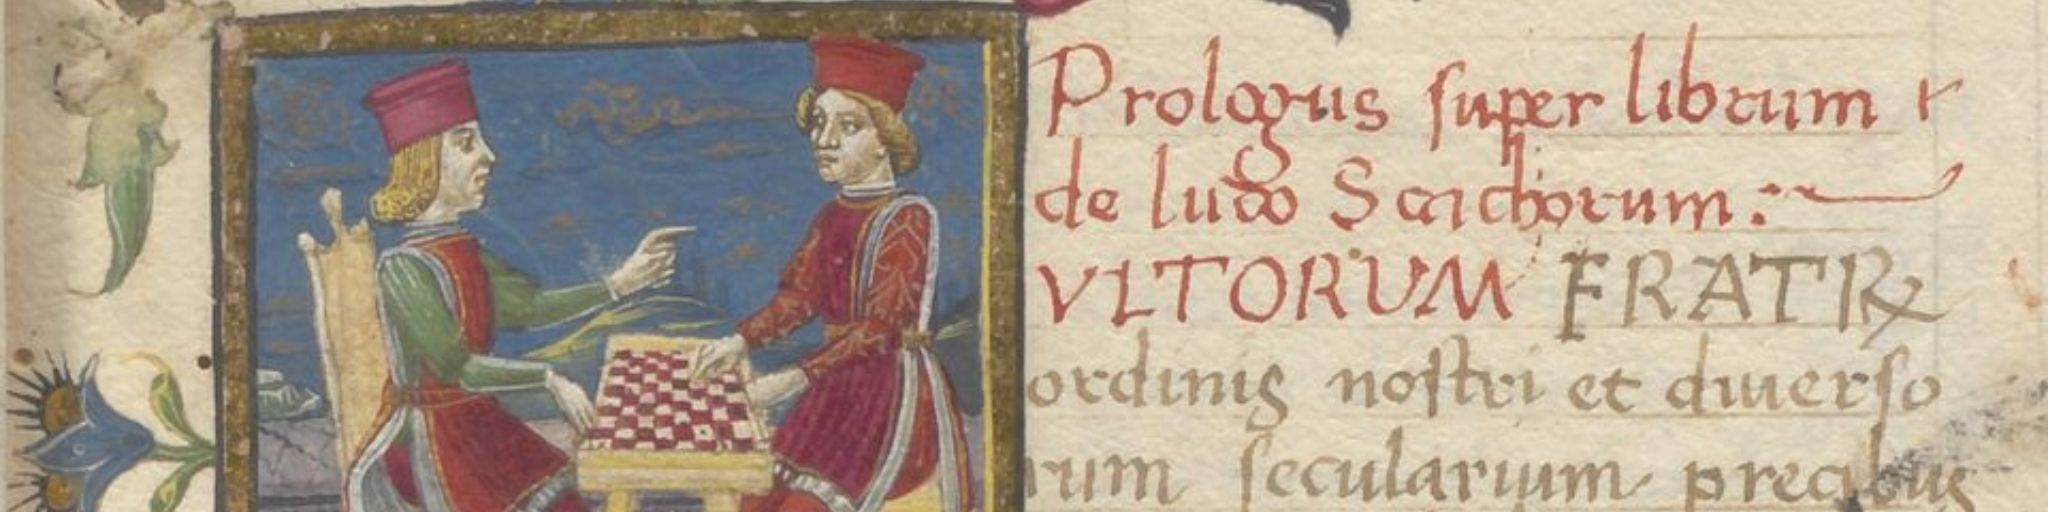 Prologus super librum
de ludo Scachorum :~
VLTORUM FRATRꝝ
ordinis nostri et diuerso
rum secularium precibus